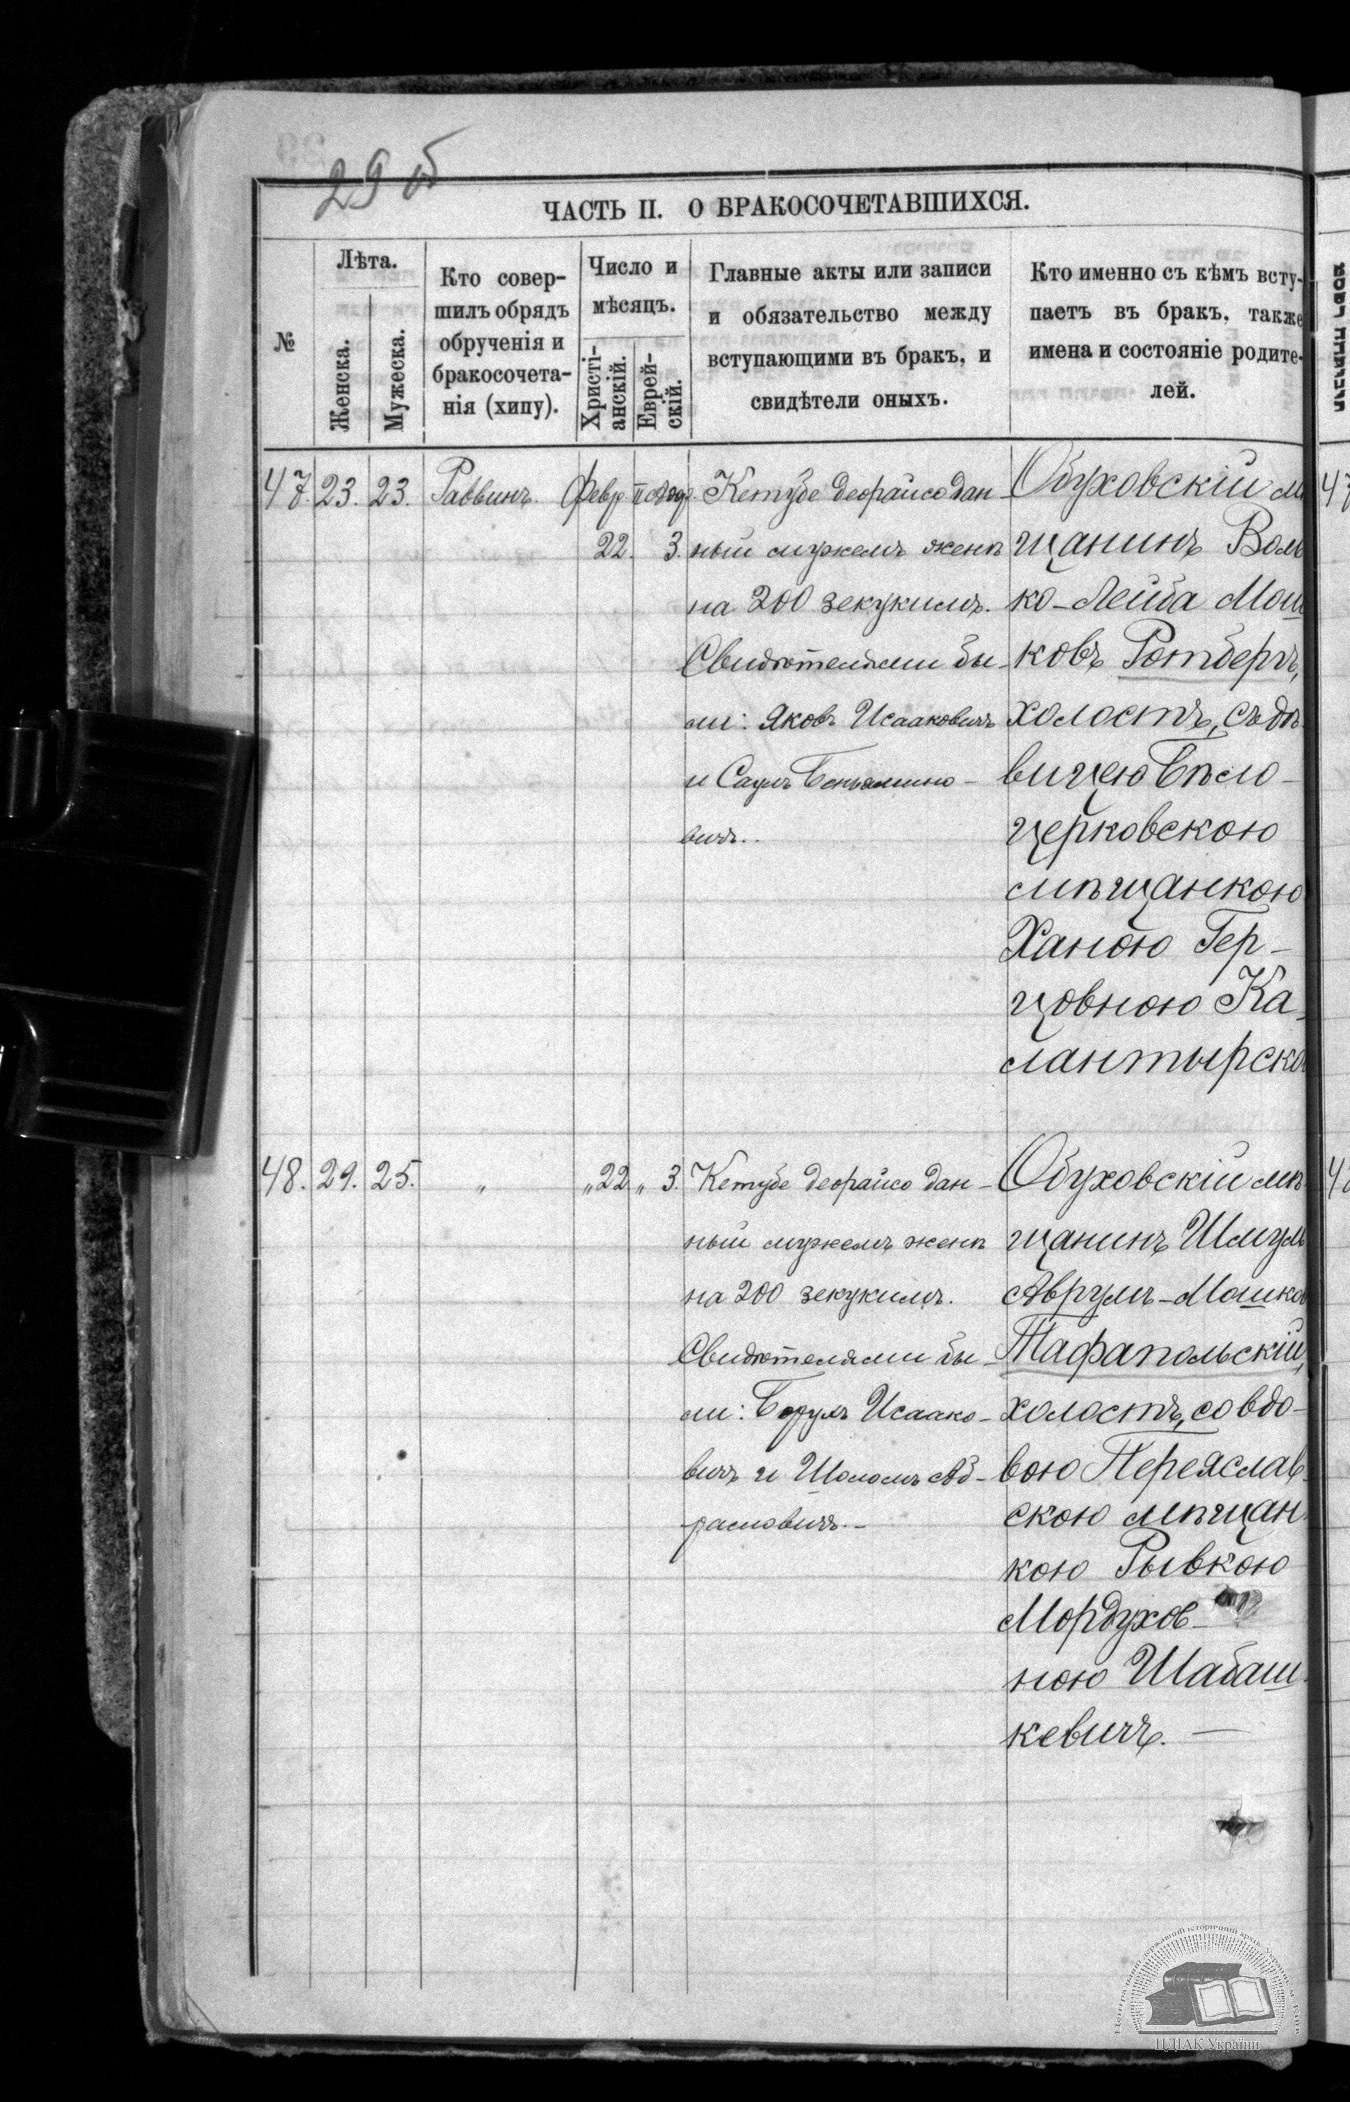 29 об
ЧАСТЬ II. О БРАКОСОЧЕТАВШИХСЯ.
№
Лѣта.
Женска.
Мужеска.
Кто совер-
шилъ обрядъ
обрученія и
бракосочета-
нія (хипу).
Число и
мѣсяцъ.
Христі-
анскій.
Еврей-
скій.
Главные акты или записи
и обязательство между
вступающими въ бракъ, и
свидѣтели оныхъ.
Кто именно съ кѣмъ всту-
паетъ въ бракъ, также
имена и состояніе родите-
лей.
47. 23. 23. Раввинъ. Февр. II Адар
22. 3.
Кетубе деорайсо дан-
ный мужемъ женѣ
на 200 зекукимъ.
Свидѣтелями бы-
ли: Яковъ Исааковичъ
и Саулъ Беньямино-
вичъ.
Обуховскій мѣ
щанинъ Воль
ко-Лейба Мош
ковъ Ротбергъ,
холостъ, съ дѣ-
вицею Бѣло-
церковскою
мѣщанкою
Ханою Гер-
цовною Ка-
лантырско
48. 29. 25. " " 22 " 3.
Кетубе деорайсо дан-
ный мужемъ женѣ
на 200 зекукимъ.
Свидѣтелями бы-
ли: Борухъ Исаако-
вичъ и Шоломъ Аб-
рамовичъ.-
Обуховскій мѣ-
щанинъ Шмуль
Аврумъ-Мошков
Тафапольскій,
холостъ, со вдо-
вою Переяслав-
скою мѣщан-
кою Рывкою
Мордухов-
ною Шабаш-
кевичъ. —
47
48
ЦДІАК України